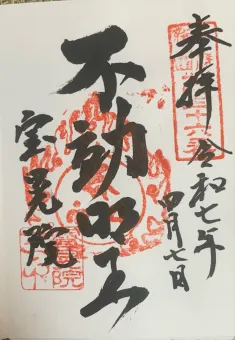 奉拝
令和七年
四月七日
不動明王
宝亀院